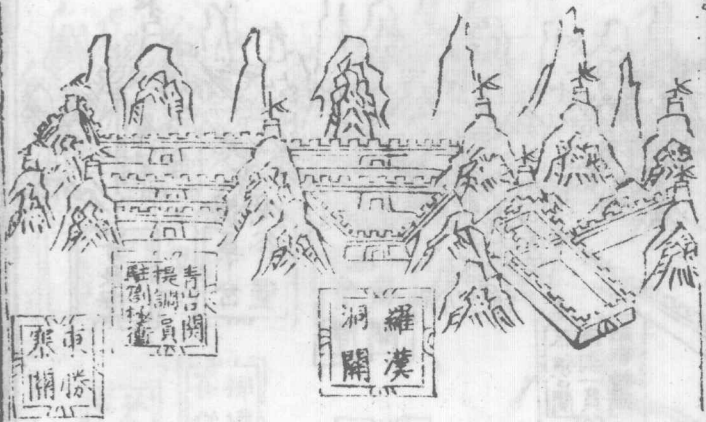 羅漢
洞關
青山口關
提調員
駐劄
東勝
寨關